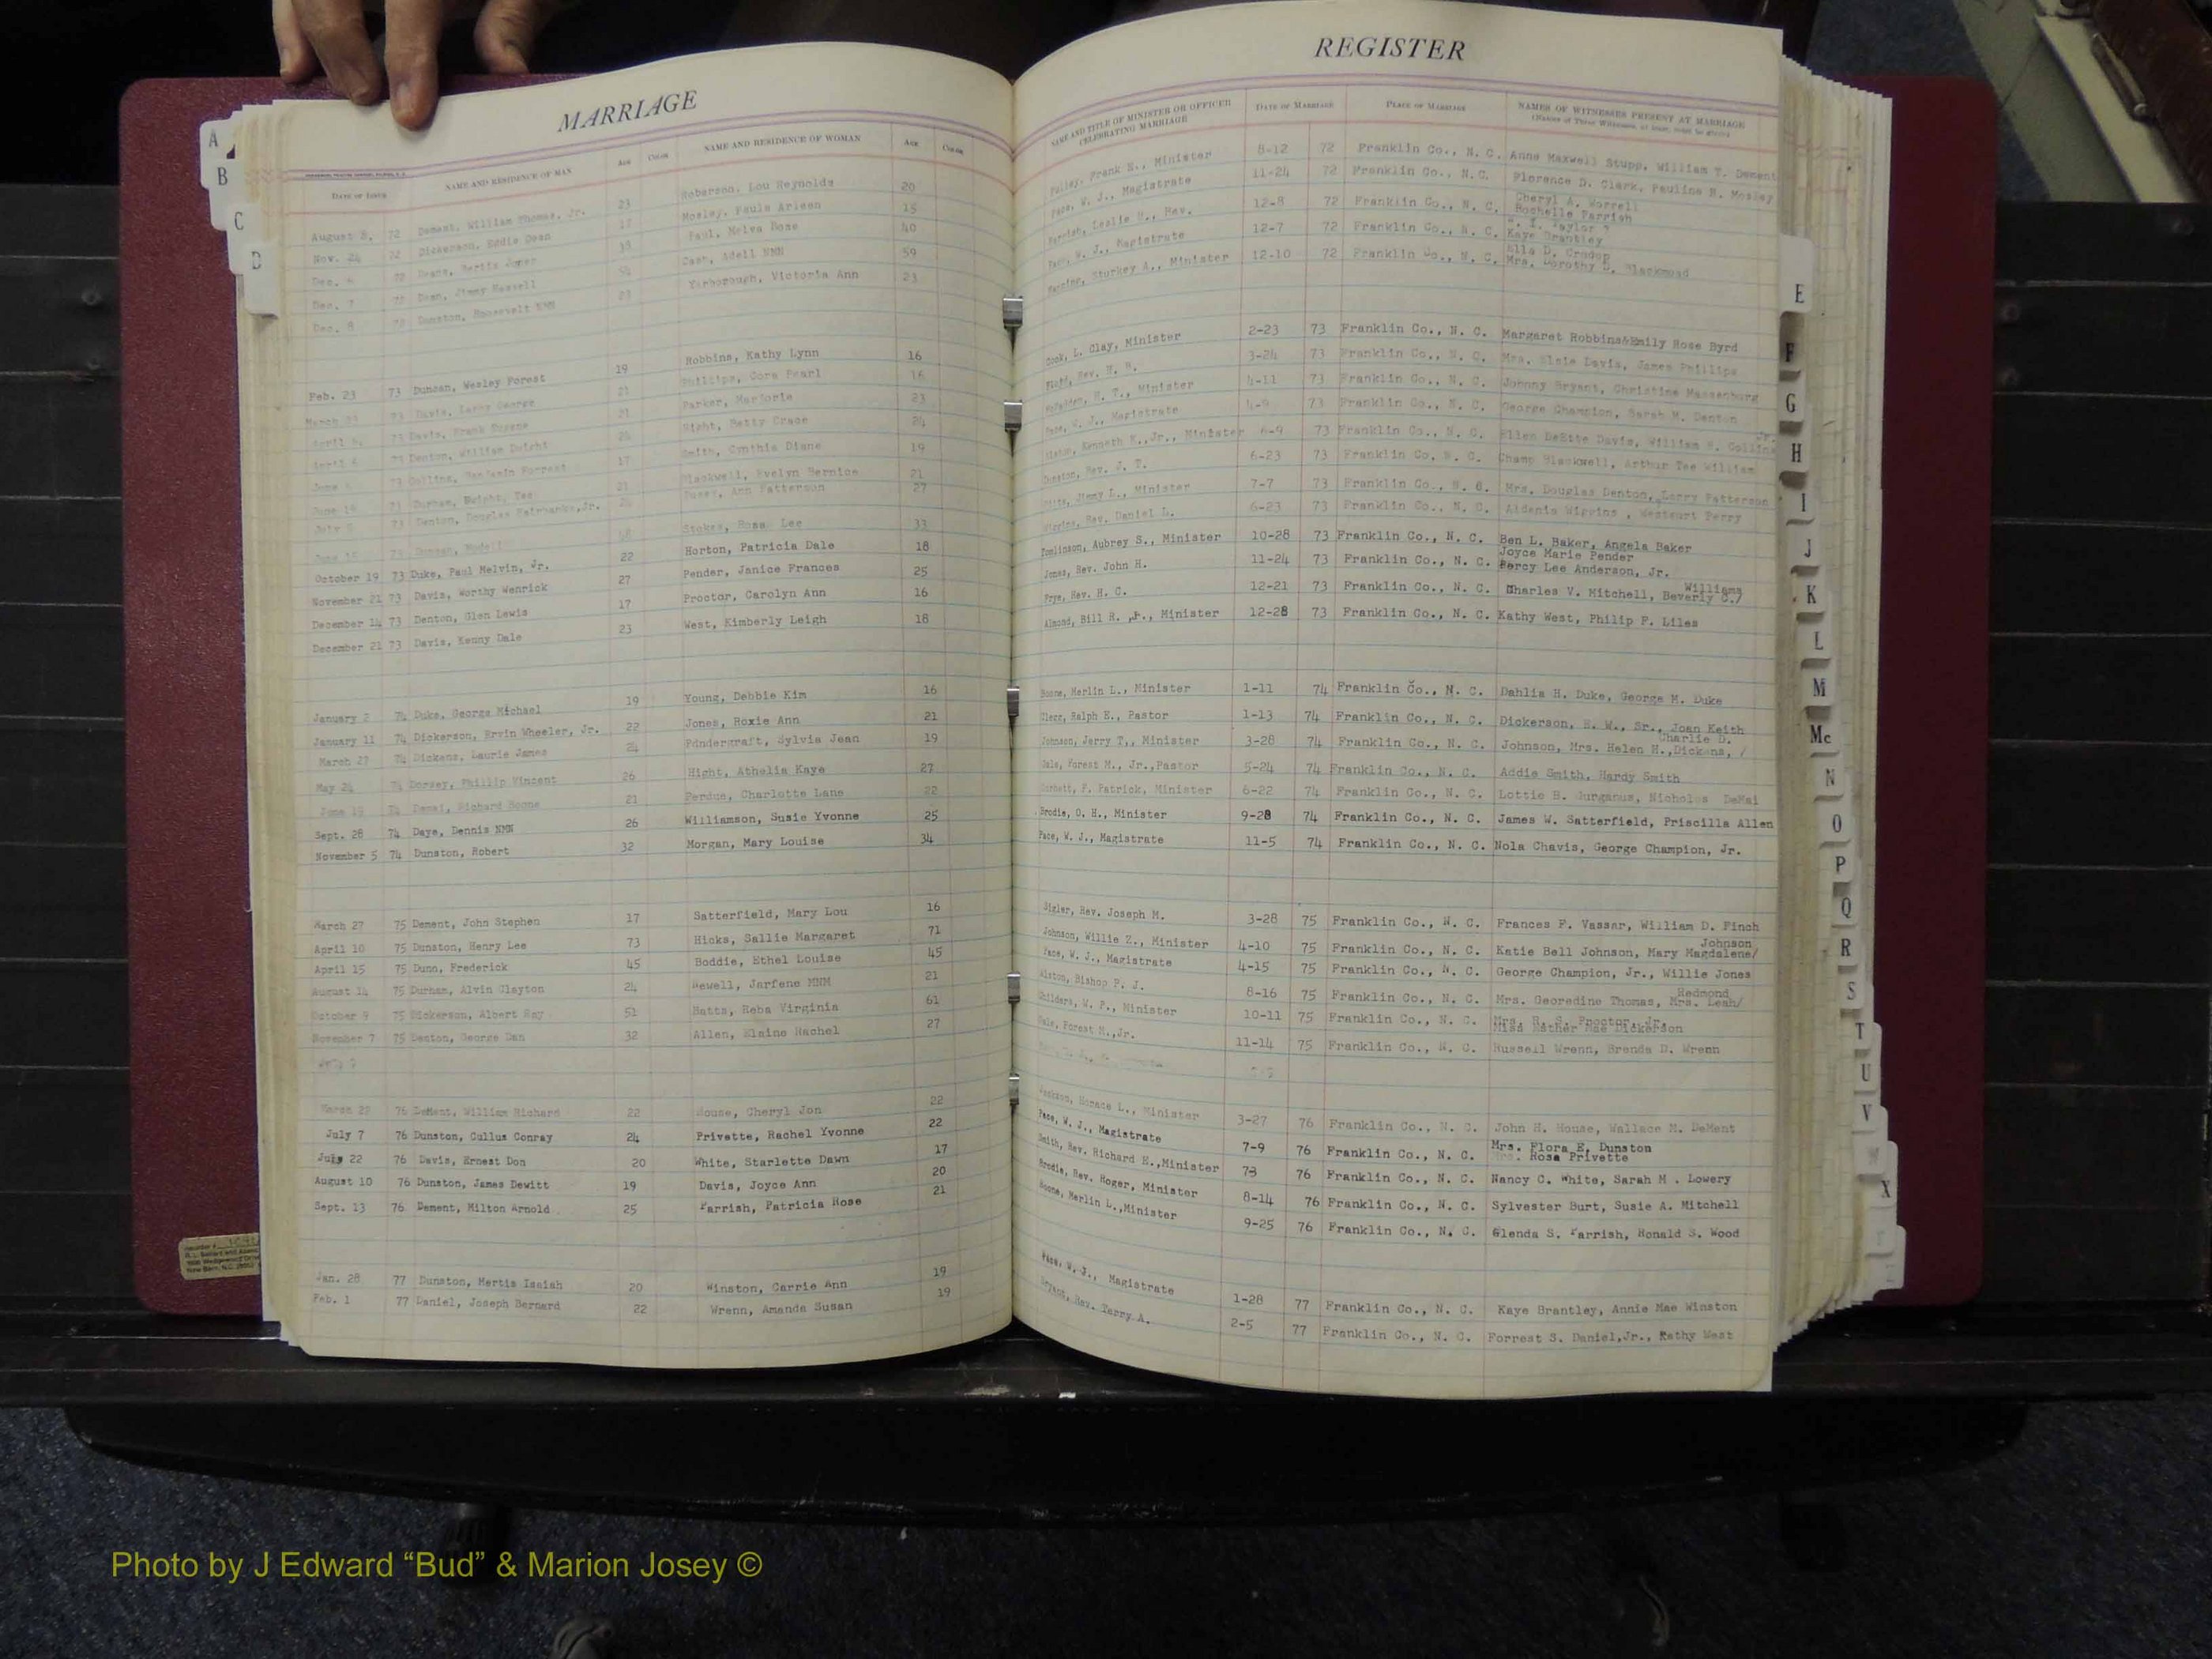 MARRIAGE
DATE OF ISSUE NAME AND RESIDENCE OF MAN AGE COLOR NAME AND RESIDENCE OF WOMAN AGE COLOR
August 8, 72 Dement, William Thomas, Jr. 23 Roberson, Lou Reynolds 20
Nov. 24 72 Dickerson, Eddie Dean 17 Mosley, Paula Arleen 15
Dec. 72 Paul, Melva Rose 40
Dec. 7 72 Dean, Jimmy Cash, Adell NMN 59
Dec. 8 72 Dunston, Roosevelt NMN 23 Yarborough, Victoria Ann 23
Feb. 23 73 Duncan, Wesley Forest 19 Robbins, Kathy Lynn 16
March 73 Davis, Leroy George 21 Phillips, Cora Pearl 16
April 73 Davis, Frank 21 Parker, Marjorie 23
April 73 Denton, William Dwight Hight, Betty Grace 24
June 73 Collins, Benjamin Forrest Smith, Cynthia Diane 19
June 73 Durham, 17 Blackwell, Evelyn Bernice 21
July 73 Denton, Douglas Fairbanks, Jr. Ann Patterson 27
June 73 Stokes, Rosa Lee 33
October 19 73 Duke, Paul Melvin, Jr. 22 Horton, Patricia Dale 18
November 21 73 Davis, Worthy Wenrick 27 Pender, Janice Frances 25
December 14 73 Denton, Glen Lewis 17 Proctor, Carolyn Ann 16
December 21 73 Davis, Kenny Dale 23 West, Kimberly Leigh 18
January 2 74 Duke, George Michael 19 Young, Debbie Kim 16
January 11 74 Dickerson, Ervin Wheeler, Jr. 22 Jones, Roxie Ann 21
March 27 74 Dickens, Laurie James 24 Pdndergraft, Sylvia Jean 19
May 24 74 Dorsey, Phillip Vincent 26 Hight, Athelia Kaye 27
June 19 74 Demai, Richard Boone 21 Perdue, Charlotte Lane 22
Sept. 28 74 Daye, Dennis NMN 26 Williamson, Susie Yvonne 25
November 5 74 Dunston, Robert 32 Morgan, Mary Louise 34
March 27 75 Dement, John Stephen 17 Satterfield, Mary Lou 16
April 10 75 Dunston, Henry Lee 73 Hicks, Sallie Margaret 71
April 15 75 Dunn, Frederick 45 Boddie, Ethel Louise 45
August 14 75 Durham, Alvin Clayton 24 Newell, Jarfene NMN 21
October 9 75 Dickerson, Albert Ray 51 Batts, Reba Virginia 61
November 7 75 Denton, George Dan 32 Allen, Elaine Rachel 27
March 22 76 DeMent, William Richard 22 House, Cheryl Jon 22
July 7 76 Dunston, Cullus Conray 24 Privette, Rachel Yvonne 22
July 22 76 Davis, Ernest Don 20 White, Starlette Dawn 17
August 10 76 Dunston, James Dewitt 19 Davis, Joyce Ann 20
Sept. 13 76 Dement, Milton Arnold 25 Parrish, Patricia Rose 21
Jan. 28 77 Dunston, Mertis Isaiah 20 Winston, Carrie Ann 19
Feb. 1 77 Daniel, Joseph Bernard 22 Wrenn, Amanda Susan 19
REGISTER
NAME AND TITLE OF MINISTER OR OFFICER CELEBRATING MARRIAGE DATE OF MARRIAGE PLACE OF MARRIAGE NAMES OF WITNESSES PRESENT AT MARRIAGE
(Names of Three Witnesses, at least, must be given)
Frank E., Minister 8-12 72 Franklin Co., N. C. Anne Maxwell Stupp, William T. Dement
Pace, W. J., Magistrate 11-24 72 Franklin Co., N.C. Florence D. Clark, Pauline B. Mosley
Parrish, Leslie H., Rev. 12-8 72 Franklin Co., N. C. Cheryl A. Worrell
Rochelle Parrish
Pace, W. J., Magistrate 12-7 72 Franklin Co., N. C. Taylor
Kaye Brantley
Sturkey A., Minister 12-10 72 Franklin Co., N. C. Ella D. Crudup
Mrs. Dorothy D. Blackmond
Cook, L. Clay, Minister 2-23 73 Franklin Co., N. C. Margaret Robbins&Emily Rose Byrd
Rev. 3-24 73 Franklin Co., N. C. Mrs. Elsie Davis, James Phillips
Minister 4-11 73 Franklin Co., N. C. Johnny Bryant, Christine Massenburg
Pace, W. J., Magistrate 4-9 73 Franklin Co., N. C. George Champion, Sarah M. Denton
Kenneth K., Jr., Minister 6-9 73 Franklin Co., N. C. Ellen DeEtte Davis, William S. Collins Jr.
Dunston, Rev. J. T. 6-23 73 Franklin Co, N. C. Champ Blackwell, Arthur Tee William
Jimmy L., Minister 7-7 73 Franklin Co., N. C. Mrs. Douglas Denton, Larry Patterson
Wiggins, Rev. Daniel L. 6-23 73 Franklin Co., N. C. Wiggins , Westcurt Perry
Tomlinson, Aubrey S., Minister 10-28 73 Franklin Co., N. C. Ben L. Baker, Angela Baker
Jones, Rev. John H. 11-24 73 Franklin Co., N. C. Joyce Marie Pender
Percy Lee Anderson, Jr.
Frye, Rev. H. C. 12-21 73 Franklin Co., N. C. Charles V. Mitchell, Beverly C./ Williams
Almond, Bill R. Jr., Minister 12-28 73 Franklin Co., N. C. Kathy West, Philip F. Liles
Boone, Merlin L., Minister 1-11 74 Franklin Co., N. C. Dahlia H. Duke, George M. Duke
Clegg, Ralph E., Pastor 1-13 74 Franklin Co., N. C. Dickerson, E. W., Sr., Joan Keith
Johnson, Jerry T., Minister 3-28 74 Franklin Co., N. C. Johnson, Mrs. Helen H.,Dickens, / Charlie D.
Hale, Forest M., Jr.,Pastor 5-24 74 Franklin Co., N. C. Addie Smith, Hardy Smith
Corbett, F. Patrick, Minister 6-22 74 Franklin Co., N. C. Lottie B. Gurganus, Nicholes DeMai
Brodie, O. H., Minister 9-28 74 Franklin Co., N. C. James W. Satterfield, Priscilla Allen
Pace, W. J., Magistrate 11-5 74 Franklin Co., N. C. Nola Chavis, George Champion, Jr.
Sigler, Rev. Joseph M. 3-28 75 Franklin Co., N. C. Frances F. Vassar, William D. Finch
Johnson, Willie Z., Minister 4-10 75 Franklin Co., N. C. Katie Bell Johnson, Mary Magdalene/ Johnson
Pace, W. J., Magistrate 4-15 75 Franklin Co., N. C. George Champion, Jr., Willie Jones
Alston, Bishop P. J. 8-16 75 Franklin Co., N. C. Mrs. Georedine Thomas, Mrs. Leah/ Redmond
Childers, W. P., Minister 10-11 75 Franklin Co., N. C. Mrs. R. S. Proctor, Jr.
Miss Esther Mae Dickerson
Hale, Forest M.,Jr. 11-14 75 Franklin Co., N. C. Russell Wrenn, Brenda D. Wrenn
Jackson, Horace L., Minister 3-27 76 Franklin Co., N. C. John H. House, Wallace M. DeMent
Pace, W. J., Magistrate 7-9 76 Franklin Co., N. C. Mrs. Flora E. Dunston
Mrs. Rosa Privette
Smith, Rev. Richard E.,Minister 73 76 Franklin Co., N. C. Nancy C. White, Sarah M . Lowery
Brodie, Rev. Roger, Minister 8-14 76 Franklin Co., N. C. Sylvester Burt, Susie A. Mitchell
Boone, Merlin L.,Minister 9-25 76 Franklin Co., N. C. Glenda S. Parrish, Ronald S. Wood
Pace, W. J., Magistrate 1-28 77 Franklin Co., N. C. Kaye Brantley, Annie Mae Winston
Bryant, Rev. Terry A. 2-5 77 Franklin Co., N. C. Forrest S. Daniel,Jr., Kathy West
A
B
C
D
E
F
G
H
I
J
K
L
M
Mc
N
O
P
Q
R
S
T
U
V
W
X
Photo by J Edward “Bud” & Marion Josey ©